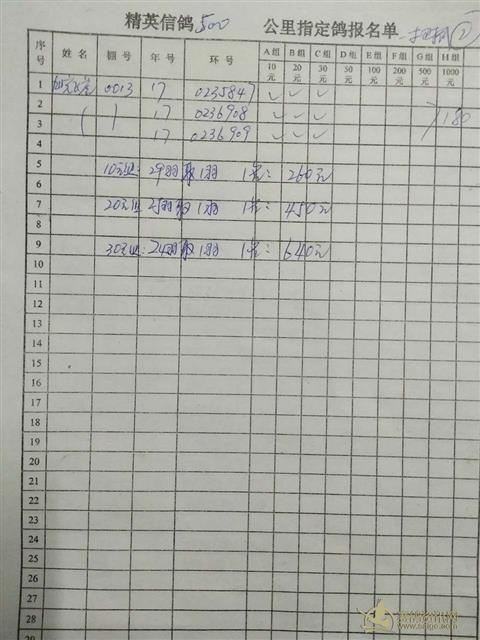 精英信鸽 500 公里指定鸽报名单 ②
序号 姓名 棚号 年号 环号 A组 B组 C组 D组 E组 F组 G组 H组
10元 20元 30元 50元 100元 200元 500元 1000元
1 0013 17 0235847 ✓ ✓ ✓
2 17 0236908 ✓ ✓ ✓ 180
3
4 17 0236909 ✓ ✓ ✓
5 10元组: 29羽取1羽 260元
6
7 20元组 1羽 450元
8
9 30元组: 24羽取1羽 640元
10
11
12
13
14
15
16
17
18
19
20
21
22
23
24
25
26
27
28